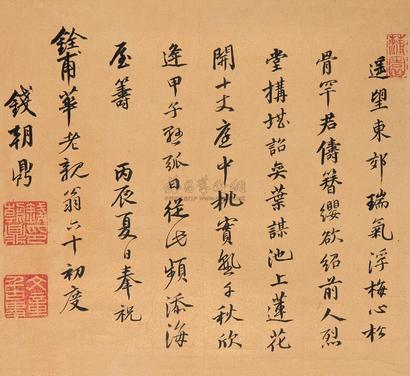 遥望東郊瑞氣浮梅心松
骨罕君儔簪纓欲紹前人烈
堂構堪詒奕葉謀池上蓮花
開十丈庭中桃實無千秋欣
逢甲子懸弧日從此頻添海
屋籌 丙辰夏日奉祝
銓甫華老親翁六十初度
錢朝鼎